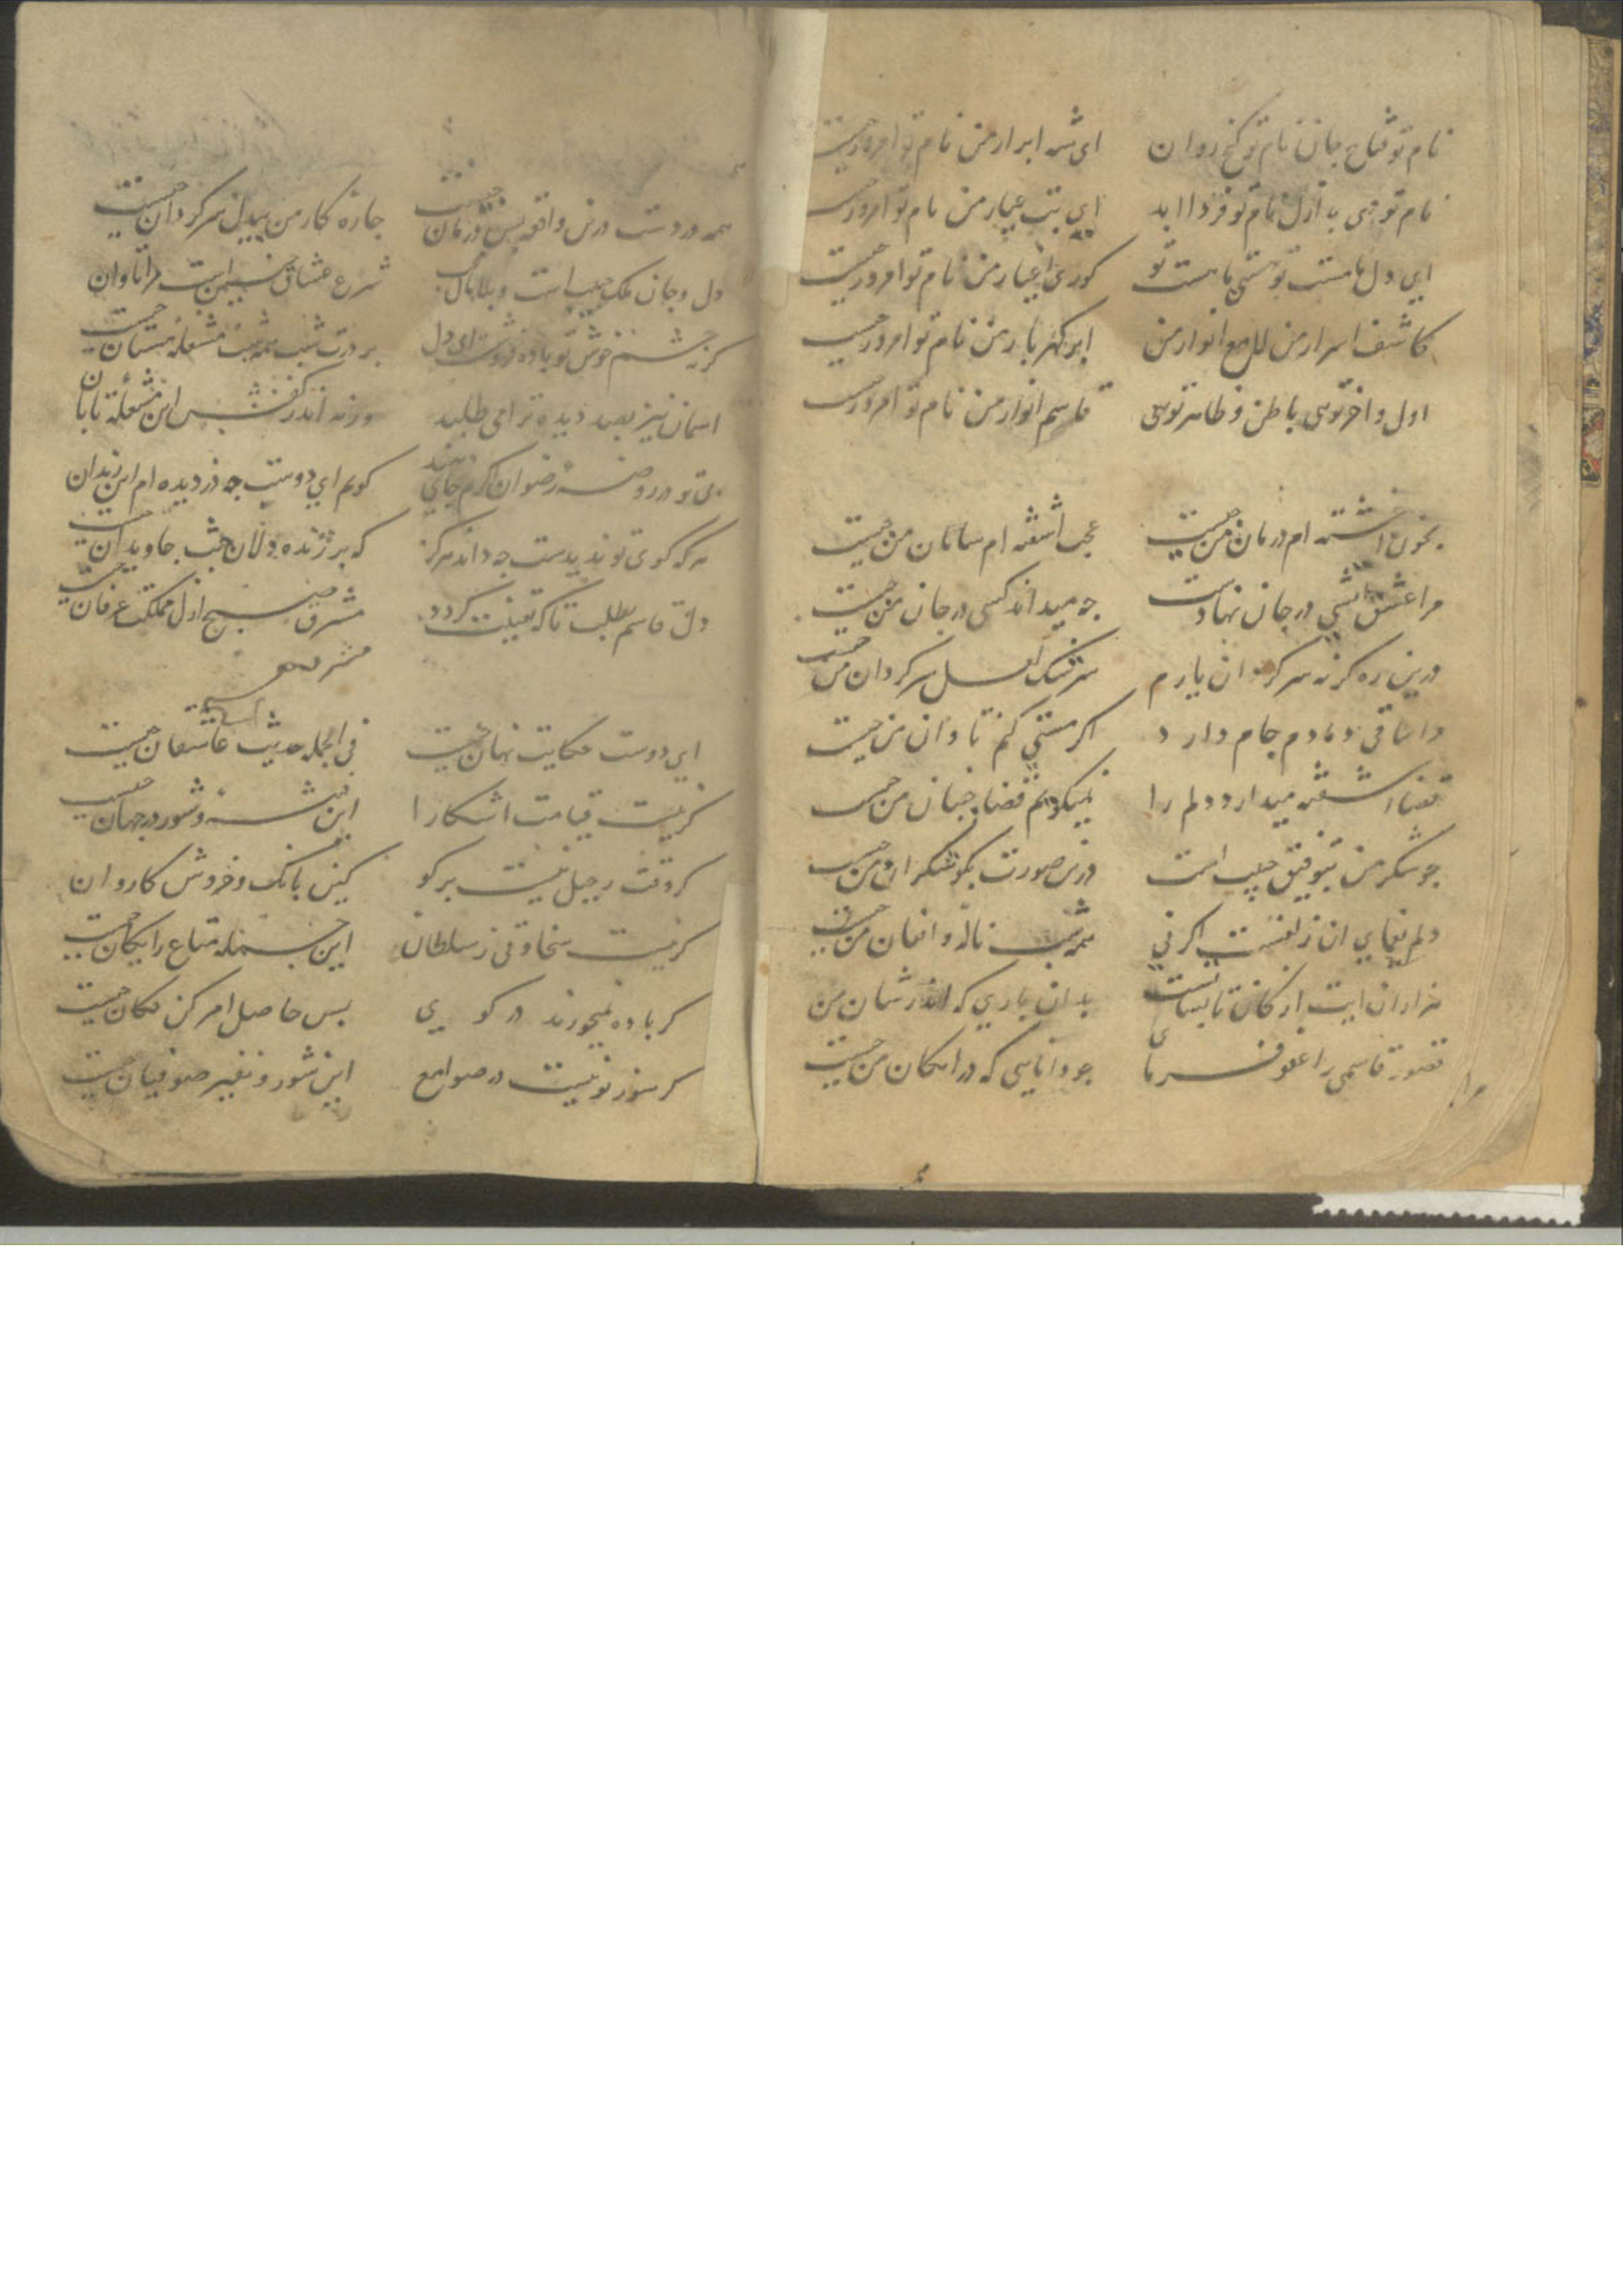 نام تو فتاح جان نام تو کنج روان ای شه ابرار من نام تو امروز چیست
نام تو حی با ازل نام تو فردا ابد ای بت عیار من نام تو امروز چیست
ای دل ما مست تو هستی ما هست تو کوری اغیار من نام تو امروز چیست
کاشف اسرار من لامع انوار من ابر کهربار من نام تو امروز چیست
اول و اخر توی باطن و ظاهر توی قاسم انوار من نام تو امروز چیست
بخون اغشته ام درمان من چیست عجب اشفته ام سامان من چیست
مرا عشق اتشی در جان نهادست چه میداند کسی در جان من چیست
درین ره کرنه سرکردان یارم سرشک لعل سرکردان من چیست
ساقی دمادم جام دارد اکر مستی کنم تاوان من چیست
قضا اشفته میدارد دلم را نمیکویم قضا جنبان من چیست
چو شکر من بتوفیق حبیب است درین صورت بکو شکران من چیست
دلم یغمای ان زلفست اکر نی همه شب ناله و افغان من چیست
هزاران ایت از کان تا بدان یاری که اندر شان من
قصور قاسمی را عفو فرمای چو دانایی که در امکان من چیست
همه دردست درین واقعه بس درمان چیست چاره کار من بیدل سرکردان چیست
دل و جان ملک حبیب است و بلا شرع عشاق است مرا تاوان
کر نه چشم خوش تو باده فروشست ای دل بر درت شب همه شب مشغله مستان چیست
اسمان نیز بصد دیده ترا می طلبد ورنه اندر این مشعله تابان
بی تو در روضه رضوان کرم جای دهند کویم ای دوست چه دزدیده ام این زندان
هر که کوی تو ندیدست چه داند هرکز که بر زنده دلان جنب جاویدان چیست
دلق قاسم بطلب تا که یقینت کردد مشرق صبح ازل مملکت عرفان چیست
ای دوست حکایت نهان چیست فی الجمله حدیث عاشقان چیست
کر نیست قیامت اشکارا این فتنه و شور در جهان چیست
کر وقت رحیل نیست برکو کین بانک و خروش کاروان
کر نیست سخاوتی ز سلطان این جمله متاع رایکان چیست
کر باده نمیخورند در کویی پس حاصل امر کن مکان چیست
کر سوز تو نیست در صوامع این شور و نفیر صوفیان چیست